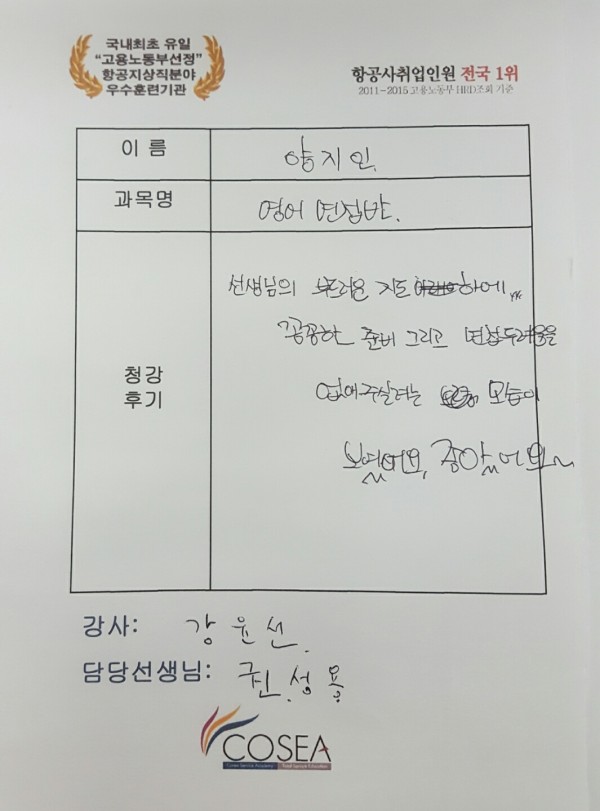 국내최초 유일
"고용노동부선정"
항공지상직분야
우수훈련기관
항공사취업인원 전국 1위
2011-2015 고용노동부 HRD조회 기준
이 름
양지인
과목명
영어 면접반.
청강
후기
선생님의 부드러운 지도 하에,,
꼼꼼한 준비 그리고 면접두려움을
없애주실려는 모습이
보였어요, 좋았어요~
강사: 강윤선.
담당선생님: 권성용
COSEA